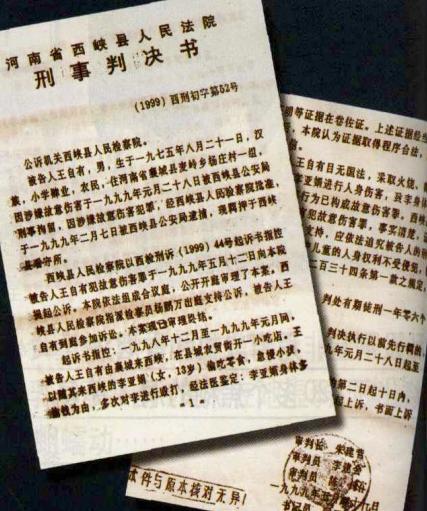 河南省西峡县人民法院
刑事判决书
(1999)西刑初字第52号
公诉机关西峡县人民检察院。
被告人王自有，男，生于一九七五年八月二十一日，汉
族，小学毕业，农民，住河南省襄城县茨岭乡杨庄村一组，
因涉嫌故意伤害于一九九九年元月二十八日被西峡县公安局
刑事拘留，因涉嫌故意伤害犯罪，经西峡县人民检察院批准，
于一九九九年二月七日被西峡县公安局逮捕，现羁押于西峡
县看守所。
西峡县人民检察院以西检刑诉(1999)44号起诉书指控
被告人王自有犯故意伤害罪于一九九九年五月十二日向本院
提起公诉。本院依法组成合议庭，公开开庭审理了本案。西
峡县人民检察院指派检察员杨鹏万出庭支持公诉，被告人王
自有到庭参加诉讼。本案现已审理终结。
起诉书指控，一九九八年十二月至一九九九年元月间，
被告人王自有由襄城来西峡，在县城农贸街开一小吃店。王
以随其来西峡的李亚娟(女，13岁)偷吃零食，怠慢小孩，
偷钱为由，多次对李进行殴打，经法医鉴定：李亚娟身体多
- 1 -
明等证据在卷佐证。上述证据经
，本院认为证据取得程序合法，
王自有目无国法，采取火烧、
亚娟进行人身伤害，致李身体
行为已构成故意伤害罪。西峡
有犯故意伤害罪，事实清楚，
支持，应依法追究被告人的刑
儿童的人身权利不受侵犯，
二百三十四条第一款之规定，
判处有期徒刑一年零六个
判决执行以前先行羁押的，
九年元月二十八日起至
的第二日起十日内，
起上诉，书面上诉
审判长 朱建营
审判员
审判员
一九九九年
书记员
本件与原本核对无异